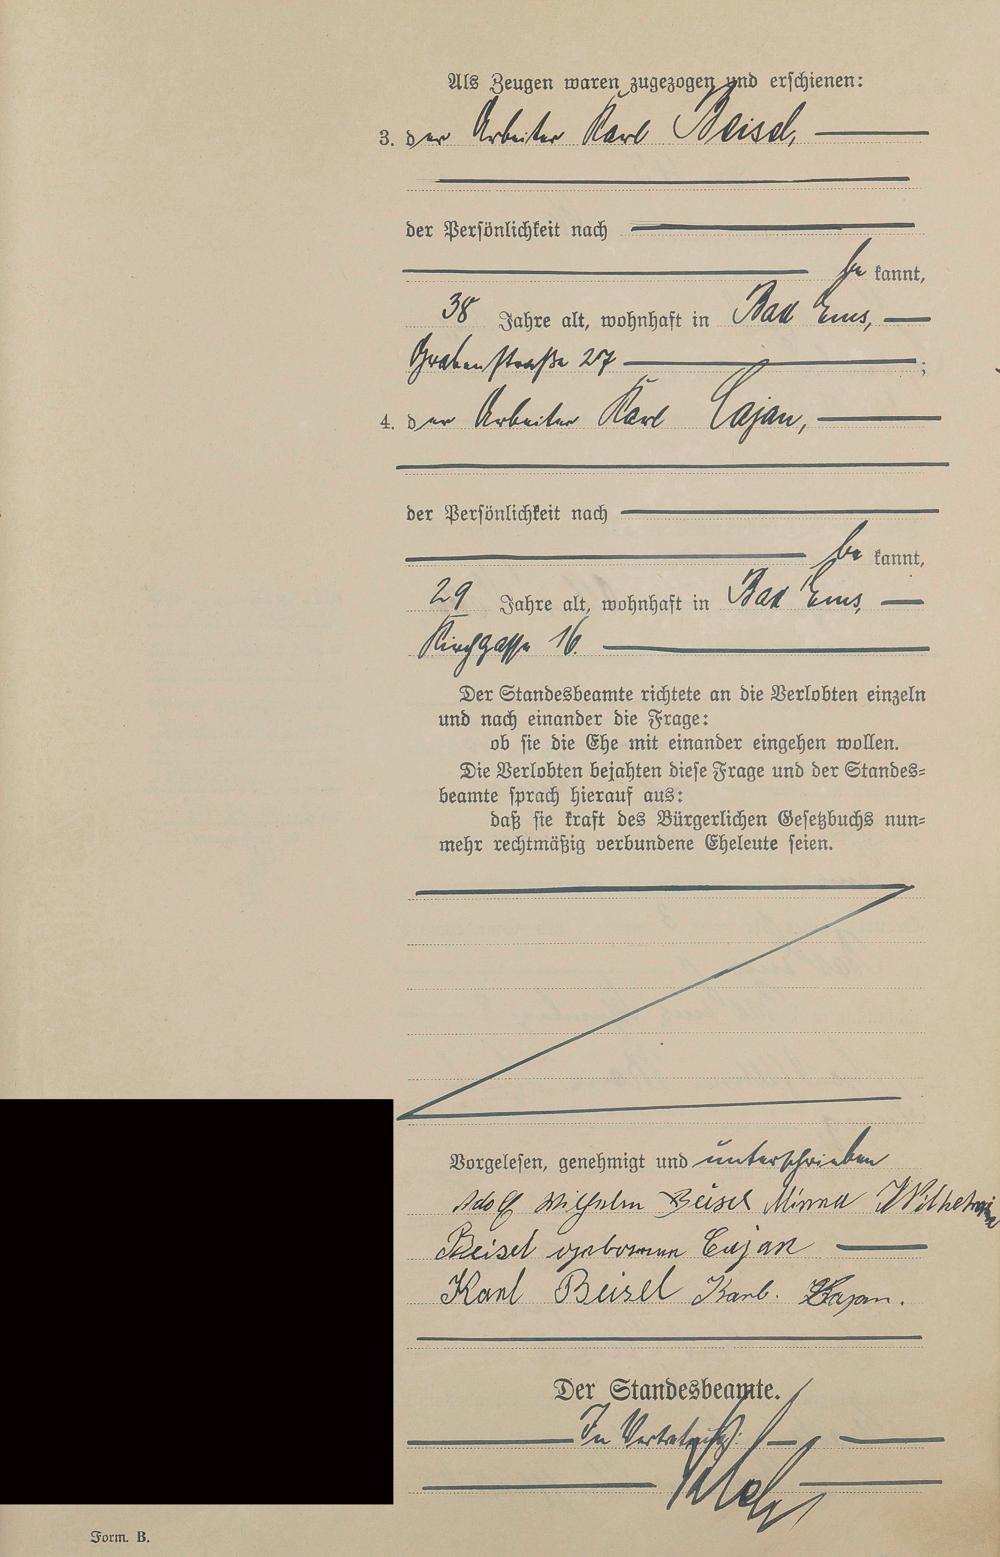 Als Zeugen waren zugezogen und erschienen:
3. der Arbeiter Karl Beisel,
der Persönlichkeit nach
be kannt,
38 Jahre alt, wohnhaft in Bad Ems,
Grabenstraße 27 ;
4. der Arbeiter Karl Cajan,
der Persönlichkeit nach
be kannt,
29 Jahre alt, wohnhaft in Bad Ems,
Kirchgasse 16.
Der Standesbeamte richtete an die Verlobten einzeln
und nach einander die Frage:
ob sie die Ehe mit einander eingehen wollen.
Die Verlobten bejahten diese Frage und der Standes-
beamte sprach hierauf aus:
daß sie kraft des Bürgerlichen Gesetzbuchs nun-
mehr rechtmäßig verbundene Eheleute seien.
Vorgelesen, genehmigt und unterschrieben
Adolf Wilhelm Beisel Minna
Beisel geborenne Cajan
Karl Beisel Karl. Cajan.
Der Standesbeamte.
In Vertretung:
Form. B.